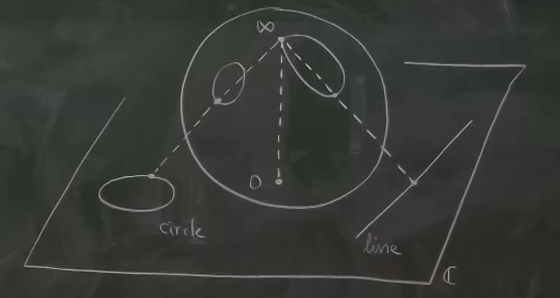 ∞
0
circle
line
ℂ